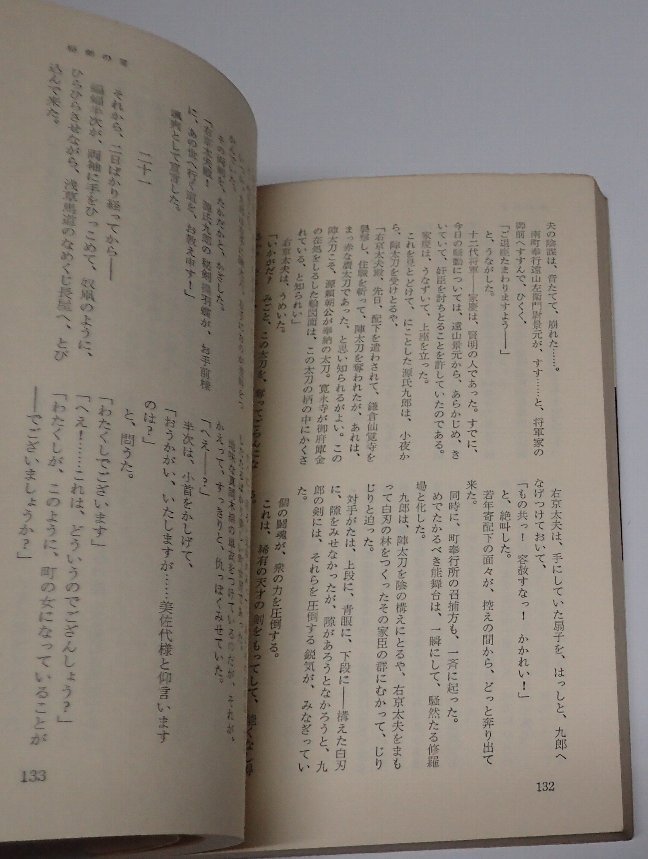 夫の陰謀は、音たてて、崩れた……。
南町奉行遠山左衛門尉景元が、すす……と、将軍家の
御前へすすんで、ひくく、
「ご退座たまわりますよう——」
と、うながした。
十二代将軍——家慶は、賢明の人であった。すでに、
今日の騒動については、遠山景元から、あらかじめ、き
いていて、奸臣を討ちとることを許していたのである。
家慶は、うなずいて、上座を立った。
これを見とどけて、にことした源氏九郎は、小夜か
ら、陣太刀を受けとるや、
「右京太夫殿、先日、配下を遣わされて、鎌倉仙覚寺を
襲撃し、住職を斬って、陣太刀を奪われたが、あれは、
まっ赤な贋太刀であった、と思い知られるがよい。この
陣太刀こそ、源頼朝公が奉納の太刀。寛永寺が御府庫金
の在処をしるした絵図面は、この太刀の柄の中にかくさ
れている、と知られい」
右京太夫は、うめいた。
「いかがだ？　みごと、この太刀を、奪ってごらんにな
右京太夫は、手にしていた扇子を、はっしと、九郎へ
なげつけておいて、
「もの共っ！　容赦すなっ！　かかれい！」
と、絶叫した。
若年寄配下の面々が、控えの間から、どっと奔り出て
来た。
同時に、町奉行所の召捕方も、一斉に起った。
めでたかるべき能舞台は、一瞬にして、騒然たる修羅
場と化した。
九郎は、陣太刀を陰の構えにとるや、右京太夫をまも
って白刃の林をつくったその家臣の群にむかって、じり
じりと迫った。
対手がたは、上段に、青眼に、下段に——構えた白刃
に、隙をみせなかったが、隙があろうとなかろうと、九
郎の剣には、それらを圧倒する鋭気が、みなぎってい
た。
個の闘魂が、衆の力を圧倒する。
これは、稀有の天才の剣をもってして、
132
かんでいた。
その両剣を、たかだかと、かざした。
「右京太夫殿！　源氏九郎の秘剣揚羽蝶が、お手前様
に、あの世へ行く道を、お教え申す！」
凛乎として宣言した。
二十一
それから、二日ばかり経ってから——
蝙蝠半次が、両袖に手をひっこめて、奴凧のように、
ひらひらさせながら、浅草馬道のなめくじ長屋へ、とび
込んで来た。
地味な真岡木綿の単衣をつけているのだが、それが、
かえって、すっきりと、仇っぽくみせていた。
「へえ——？」
半次は、小首をかしげて、
「おうかがい、いたしますが……美佐代様と仰言います
のは？」
と、問うた。
「わたくしでございます」
「へえ！……これは、どういうのでござんしょう？」
「わたくしが、このように、町の女になっていることが
——でございましょうか？」
133